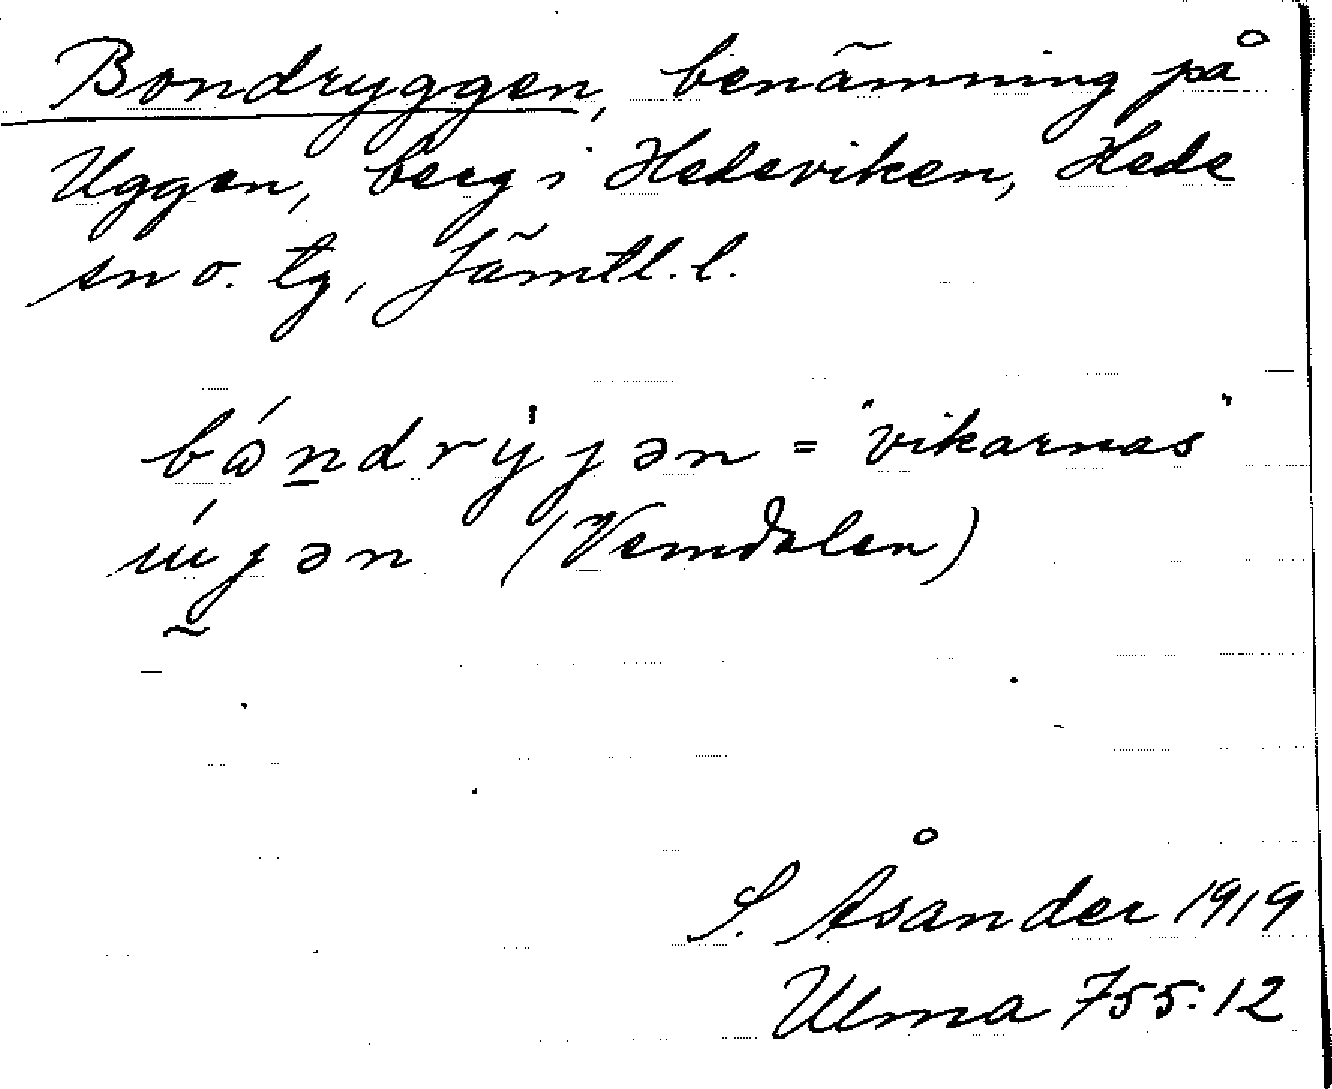 Bondryggen, benämning på
Uggen, berg i Hedeviken, Hede
sn o. tg, Jämtl. l.
bóndrýjən = "vikarnas"
újən (Vemdalen)
S. Åsander 1919
Ulma 755:12